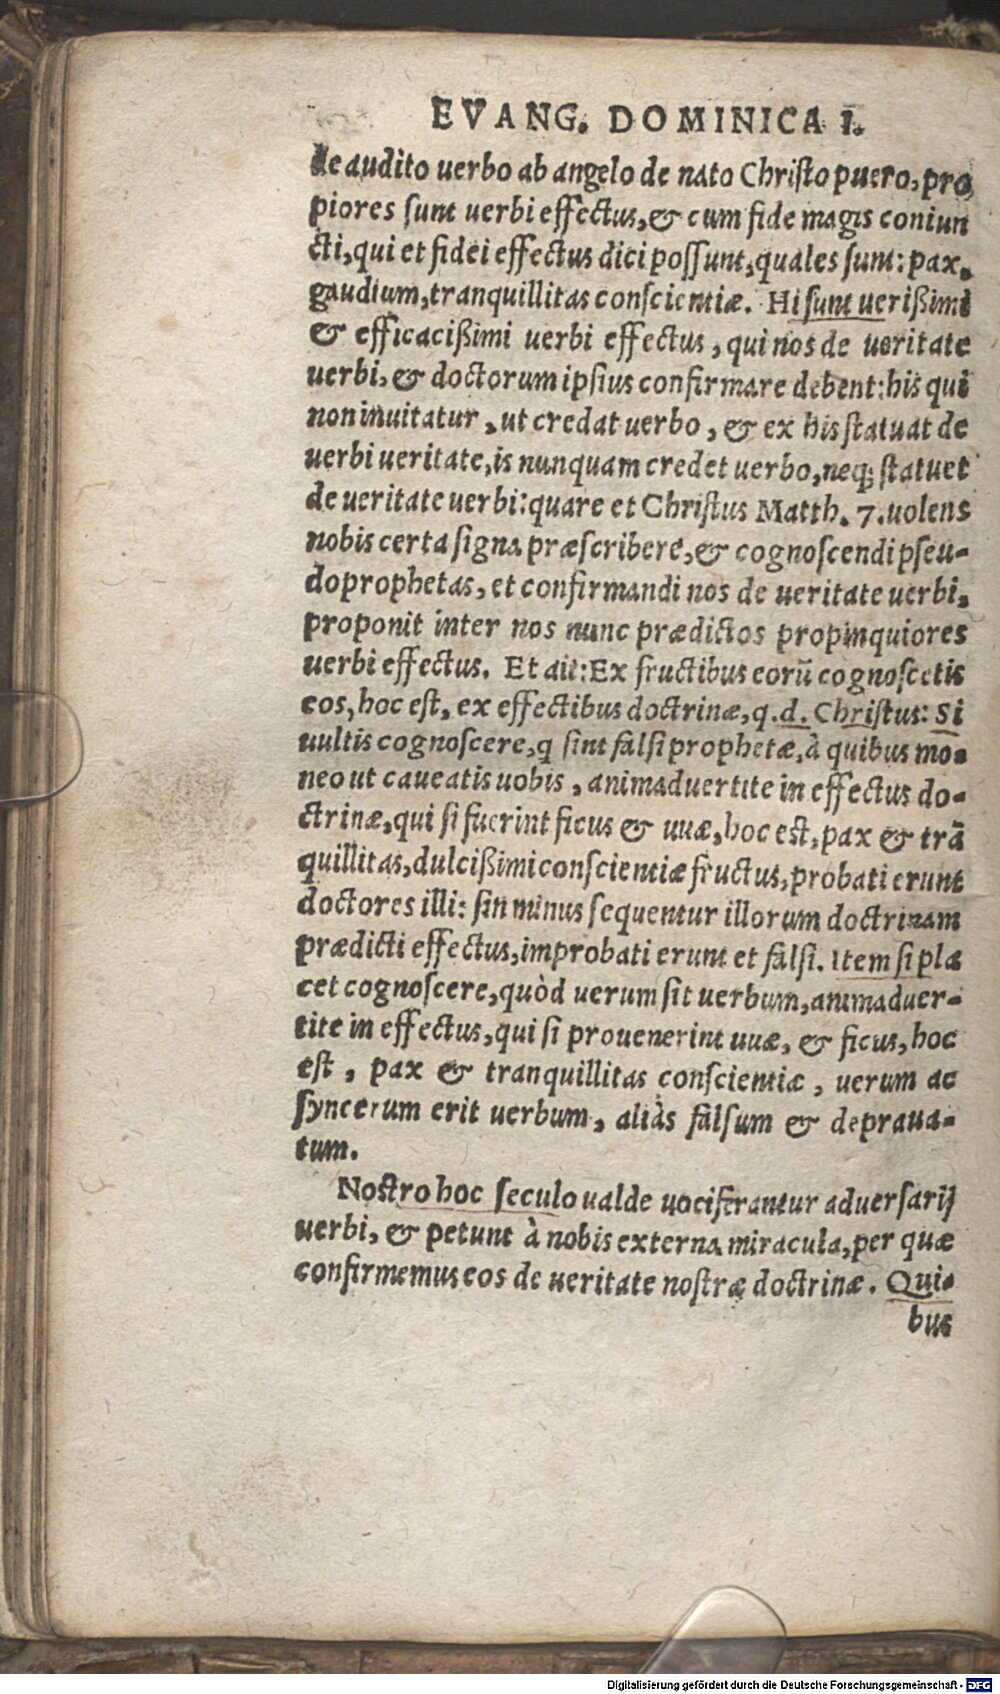 EVANG. DOMINICA I.
de audito uerbo ab angelo de nato Christo puero, pro
piores sunt uerbi effectus, & cum fide magis coniun
cti, qui et fidei effectus dici possunt, quales sunt: pax,
gaudium, tranquillitas conscientiæ. Hi sunt uerißimi
& efficacißimi uerbi effectus, qui nos de ueritate
uerbi, & doctorum ipsius confirmare debent: his qui
non inuitatur, ut credat uerbo, & ex his statuat de
uerbi ueritate, is nunquam credet uerbo, neq; statuet
de ueritate uerbi: quare et Christus Matth. 7. uolens
nobis certa signa præscribere, & cognoscendi pseu-
doprophetas, et confirmandi nos de ueritate uerbi,
proponit inter nos nunc prædictos propinquiores
uerbi effectus. Et ait: Ex fructibus eorū cognoscetis
eos, hoc est, ex effectibus doctrinæ, q.d. Christus: Si
uultis cognoscere, q sint falsi prophetæ, à quibus mo-
neo ut caueatis uobis, animaduertite in effectus do-
ctrinæ, qui si fuerint ficus & uuæ, hoc est, pax & trā
quillitas, dulcißimi conscientiæ fructus, probati erunt
doctores illi: sin minus sequentur illorum doctrinam
prædicti effectus, improbati erunt et falsi. Item si pla
cet cognoscere, quòd uerum sit uerbum, animaduer-
tite in effectus, qui si prouenerint uuæ, & ficus, hoc
est, pax & tranquillitas conscientiæ, uerum ac
syncerum erit uerbum, aliàs falsum & depraua-
tum.
Nostro hoc seculo ualde uociferantur aduersarij
uerbi, & petunt à nobis externa miracula, per quæ
confirmemus eos de ueritate nostræ doctrinæ. Qui-
bus
Digitalisierung gefördert durch die Deutsche Forschungsgemeinschaft - DFG